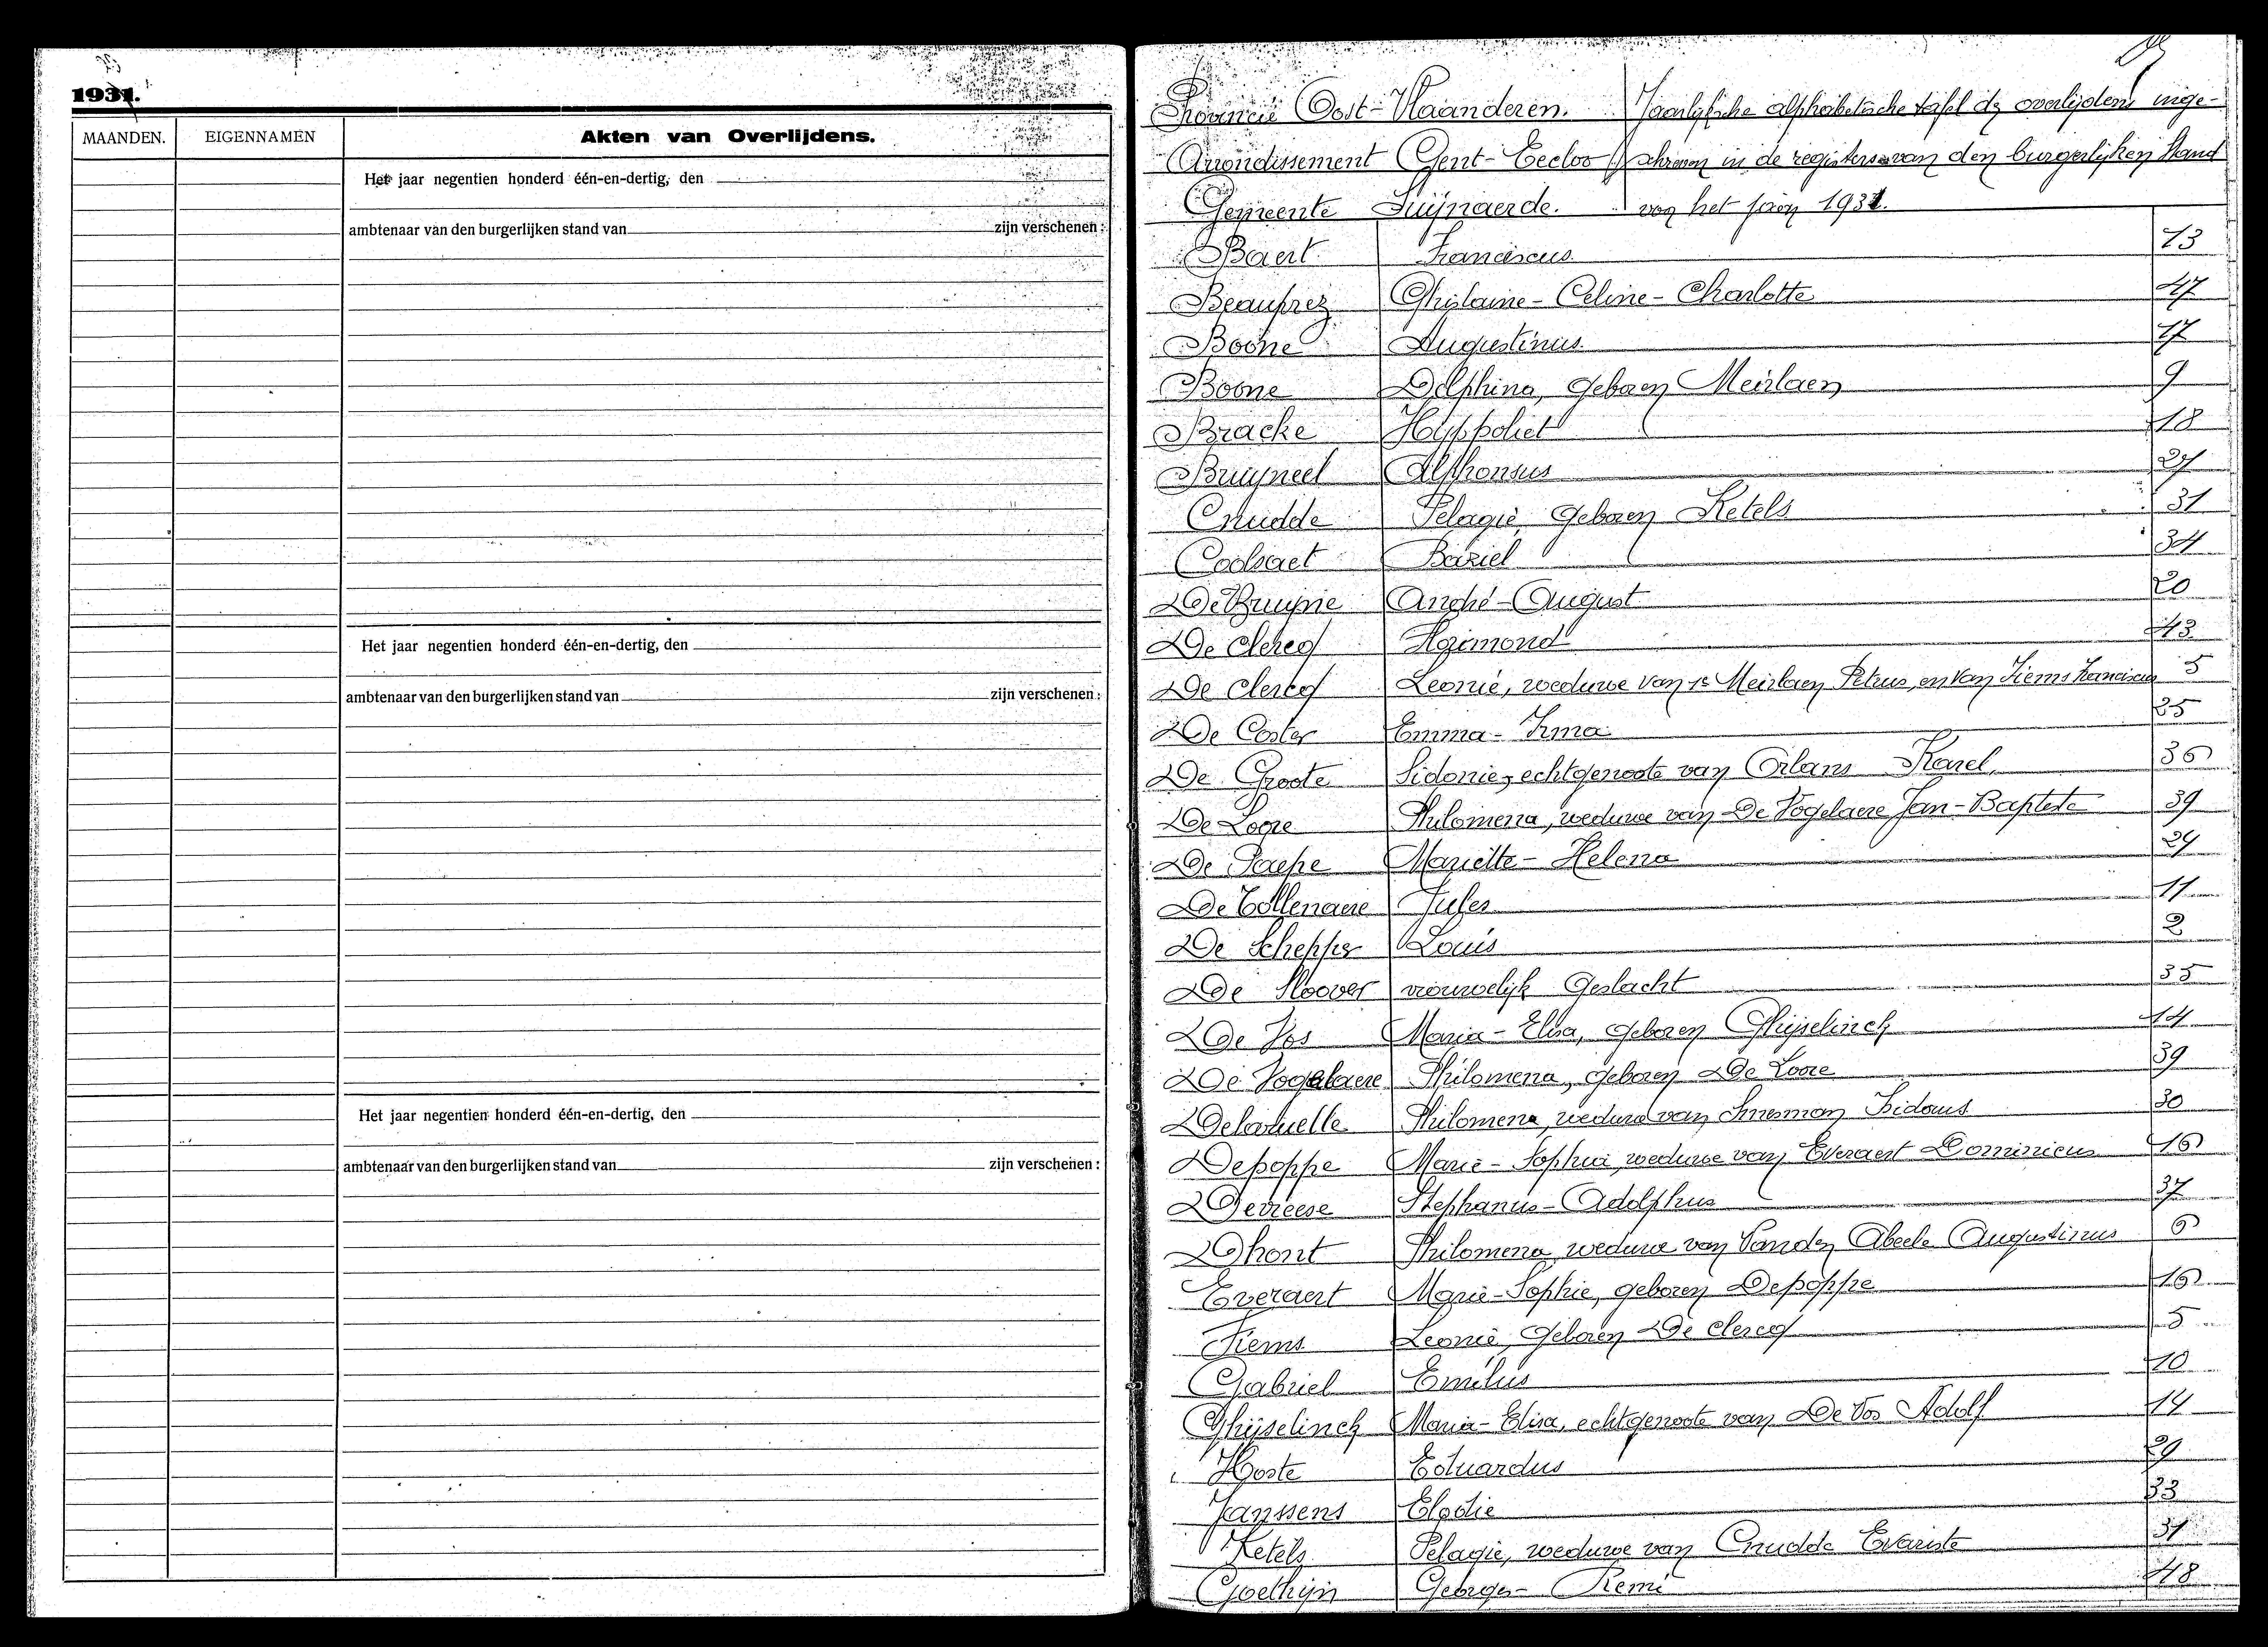 1931.
MAANDEN.
EIGENNAMEN
Akten van Overlijdens.
Het jaar negentien honderd één-en-dertig, den
ambtenaar van den burgerlijken stand van zijn verschenen:
Het jaar negentien honderd één-en-dertig, den
ambtenaar van den burgerlijken stand van zijn verschenen:
Het jaar negentien honderd één-en-dertig, den
ambtenaar van den burgerlijken stand van zijn verschenen:
Provincie Oost-Vlaanderen. Jaarlijksche alphabetische tafel der overlijdens inge-
Arrondissement Gent-Eecloo schreven in de registers van den burgerlijken stand
Gemeente Zuijnaerde. voor het jaar 1931.
Baert Franciscus 13
Beauprez Ghislaine-Celine-Charlotte 47
Boone Augustinus 17
Boone Delphina, geboren Meirlaen 9
Bracke Hyppoliet 18
Bruyneel Alphonsus 27
Cnudde Pelagie, geboren Ketels 31
Coolsaet Baziel 34
De Bruyne André-August 20
De Clercq 43
De Clercq Leonie, weduwe van 1e Meirlaen Petrus, en van Fiems Franciscus 5
De Coster Emma-Irma 25
De Groote Sidonie, echtgenoote van Orlans Karel 36
De Loore Philomena, weduwe van De Vogelaere Jan-Baptiste 39
De Paepe Mariette-Helena 24
De Tollenaere Jules 11
De Schepper Louis 2
De Sloover vrouwelijk Geslacht 35
De Vos Maria-Elisa, geboren Ghijselinck 14
De Vogelaere Philomena, geboren De Loore 39
Delaruelle Philomena, weduwe van Isidorus 30
Depoppe Marie-Sophia, weduwe van Everaert Dominicus 16
Devreese Stephanus-Adolphus 37
Dhont Philomena, weduwe van Vanden Abeele Augustinus 6
Everaert Marie-Sophie, geboren Depoppe 16
Fiems Leonie, geboren De Clercq 5
Gabriel Emilius 10
Ghijselinck Maria-Elisa, echtgenoote van De Vos Adolf 14
Hoste Eduardus 29
Janssens Elodie 33
Ketels Pelagie, weduwe van Cnudde Evariste 31
Goethijn Georges-Remi 48